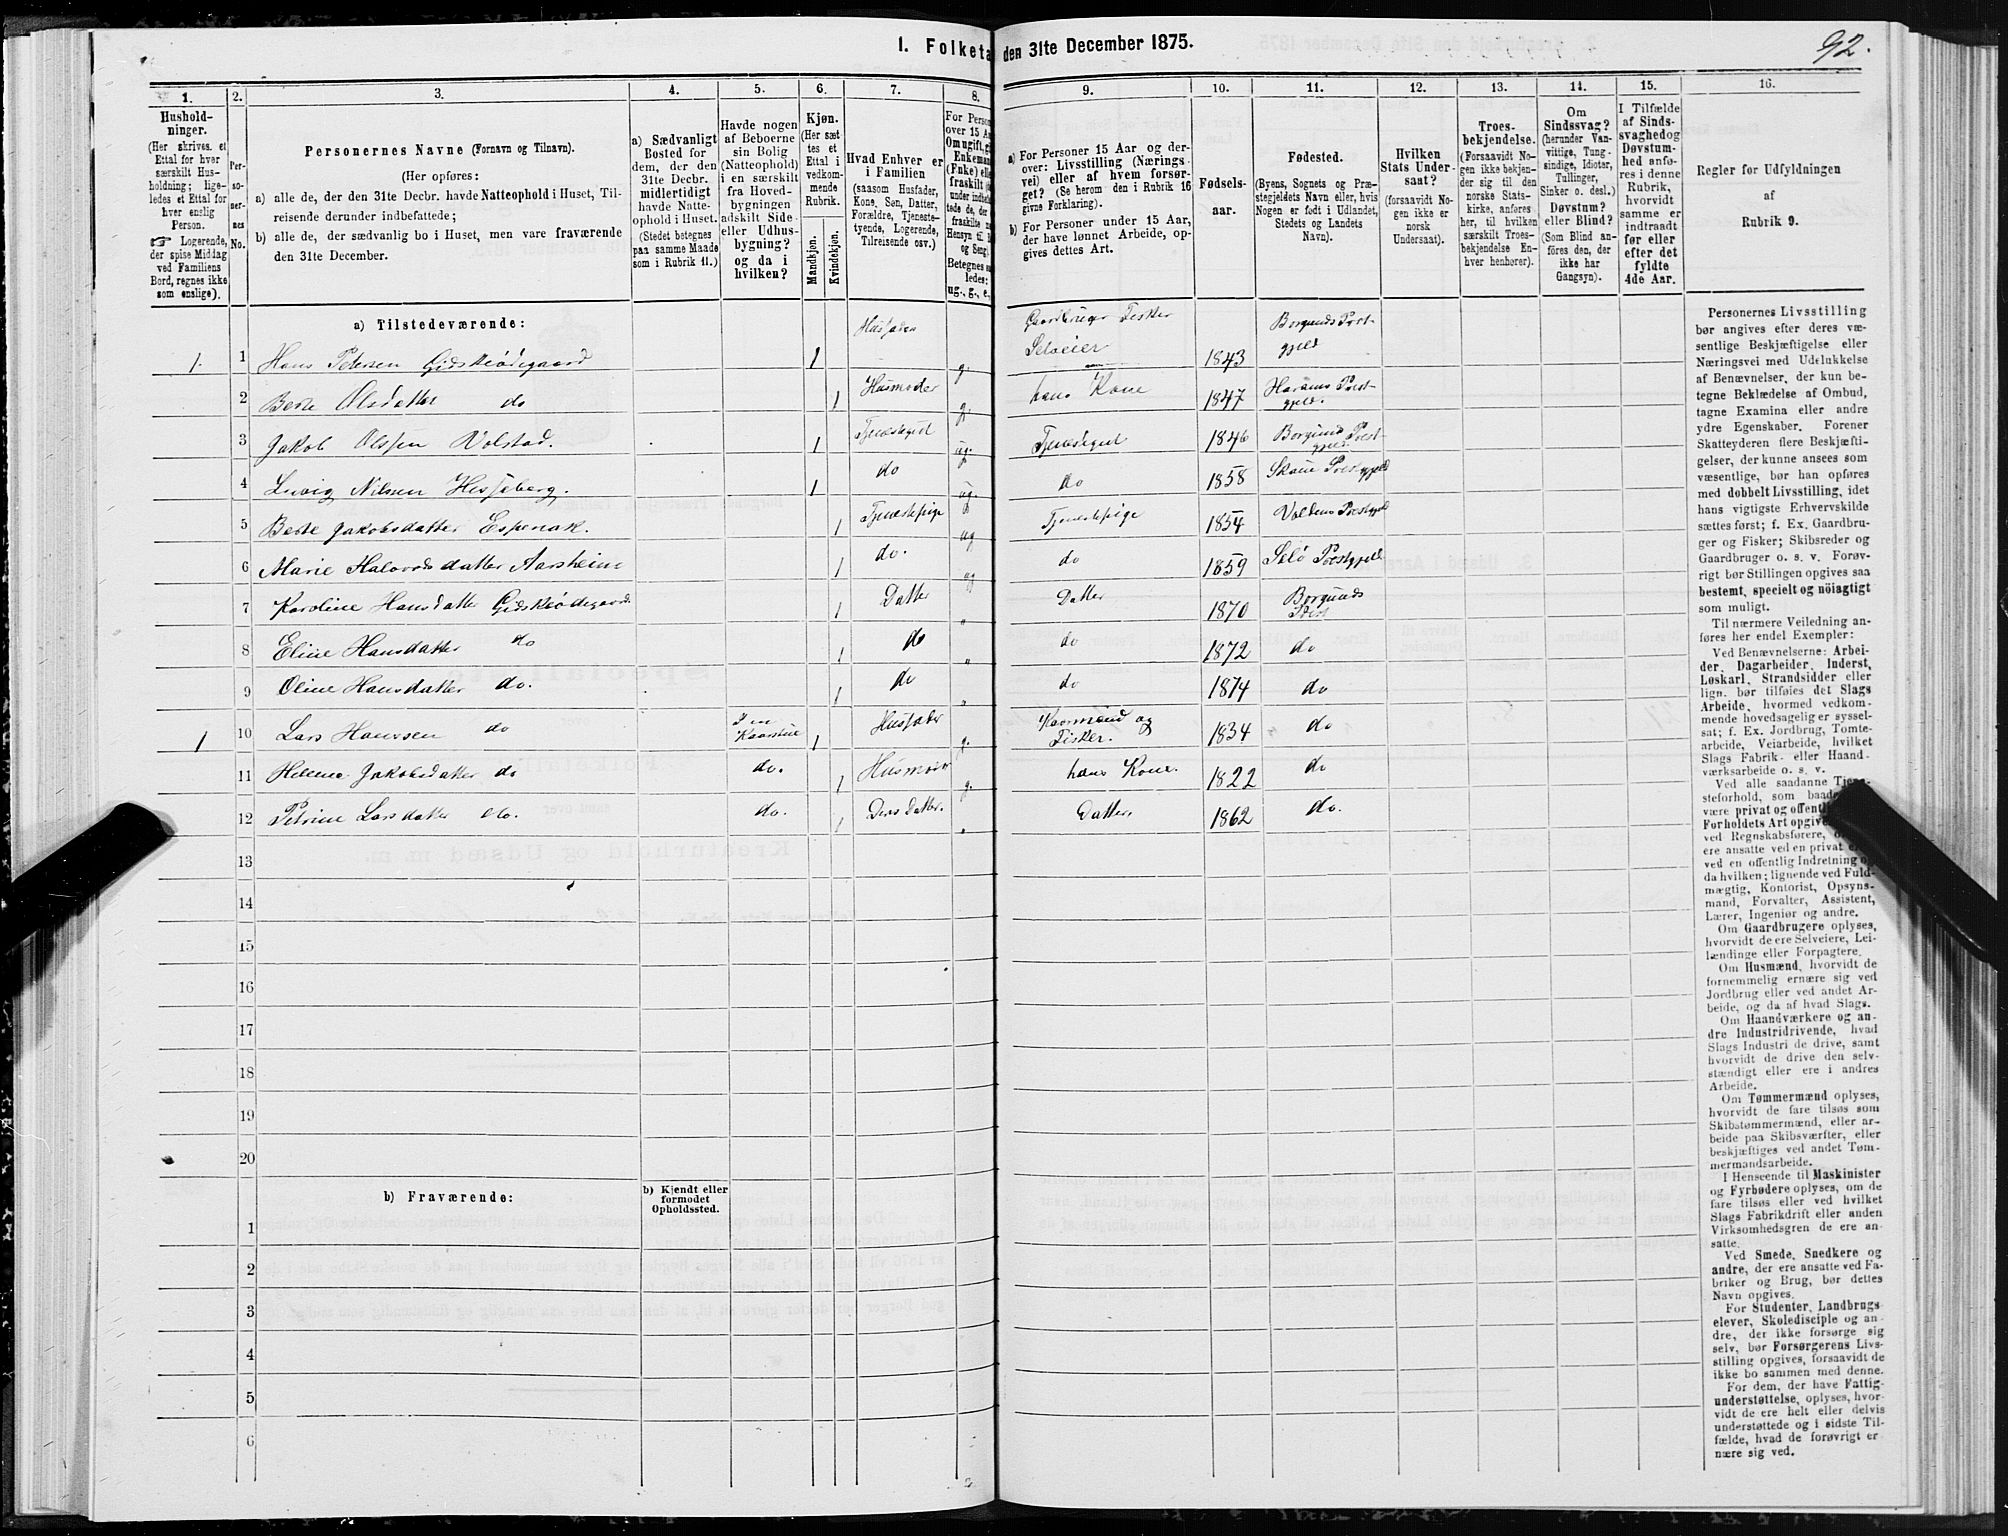 I. Folketa den 31te December 1875.
92.
1.
2.
3.
4.
5.
6.
7.
8.
9.
10.
11.
12.
13.
14.
15.
16.
Hushold-
ninger.
(Her skrives et
Ettal for hver
særskilt Hus-
holdning; lige-
ledes et Ettal for
hver enslig
Person.
☞ Logerende,
der spise Middag
ved Familiens
Bord, regnes ikke
som enslige).
Per-
so-
ner-
nes
No.
Personernes Navne (Fornavn og Tilnavn).
(Her opføres:
a) alle de, der den 31te Decbr. havde Natteophold i Huset, Til-
reisende derunder indbefattede;
b) alle de, der sædvanlig bo i Huset, men vare fraværende
den 31te December.
a) Sædvanligt
Bosted for
dem, der den
31te Decbr.
midlertidigt
havde Natte-
ophold i Huset.
(Stedet betegnes
paa samme Maade
som i Rubrik 11.)
Havde nogen
af Beboerne
sin Bolig
(Natteophold)
i en særskilt
fra Hoved-
bygningen
adskilt Side-
eller Udhus-
bygning?
og da i
hvilken?
Kjøn.
(Her sæt
tes et
Ettal i
vedkom-
mende
Rubrik.
Mandkjøn.
Kvindekjøn.
Hvad Enhver er
i Familien
(saasom Husfader,
Kone, Søn, Datter,
Forældre, Tjeneste-
tyende, Logerende,
Tilreisende osv.)
For Person
over 15 Aa
Om ugift, gi
Enkeman
(Enke) elle
fraskilt
under indbefat
tede de, der
fraskilte
Hensyn til
og Seng)
Betegnes
ledes:
ug., g., e.,
a) For Personer 15 Aar og der-
over: Livsstilling (Nærings-
vei) eller af hvem forsør-
get? (Se herom den i Rubrik 16
givne Forklaring).
b) For Personer under 15 Aar,
der have lønnet Arbeide, op-
gives dettes Art.
Fødsels-
aar.
Fødested.
(Byens, Sognets og Præ-
stegjeldets Navn eller, hvis
Nogen er født i Udlandet,
Stedets og Landets
Navn).
Hvilken
Stats Under-
saat?
(forsaavidt No-
gen ikke er
norsk
Undersaat).
Troes-
bekjendelse.
(Forsaavidt No-
gen ikke bekjen-
der sig til den
norske Stats-
kirke, anføres
her, til hvilken
særskilt Troes-
bekjendelse En-
hver henhører).
Om
Sindssvag?
(herunder Van-
vittige, Tung-
sindige, Idioter,
Tullinger,
Sinker o. desl.)
Døvstum?
eller Blind?
(Som Blind an-
føres den, der
ikke har
Gangsyn).
I Tilfælde
af Sinds-
svaghed og
Døvstum-
hed anfø-
res i denne
Rubrik,
hvorvidt
samme er
indtraadt
før eller
efter det
fyldte
4de Aar.
Regler for Udfyldningen
af
Rubrik 9.
a) Tilstedeværende:
1. 1 Hans Petersen Gidskeødegaard 1 Husfader g. Gaardbruger Fisker Selveier 1843 Borgunds Prst-
gjeld
2 Berte Olsdatter do 1 Husmoder g. hans Kone 1847 Harams Prest-
gjeld.
3 Jakob Olssen Volstad. 1 Tjenestegut ug. Tjenestegut 1846 Borgund Prest-
gjeld
4 Luvig Nilsen Hesseberg. 1 do ug. do 1858 Prestgjeld
5 Berte Jakobsdatter Espenak. 1 Tjenestepige ug Tjenestepige 1854 Voldens Prestgjeld
6 Marie Halvordsdatter Aarsheim 1 do. ug do 1859 Selø Prestgjeld
7 Karoline Hansdatter Gidskeødegaard 1 Datter „ Datter 1870 Borgunds
Prest
8 Eline Hansdatter do 1 do „ do 1872 do
9 Oline Hansdatter do. 1 do „ do 1874 do
1 10 Lars Hanssen do I en
Kaarstue 1 Husfader g. Kaarmand og
Fisker. 1834 do
11 Hellene Jakobsdatter do do. 1 Husmoder g. hans Kone. 1822 do
12 Petrine Larsdatter do. do. 1 Deres Datter. „ Datter. 1862 do.
13
14
15
16
17
18
19
20
b) Fraværende:
b) Kjendt eller
formodet
Opholdssted.
1
2
3
4
5
6
Personernes Livsstilling
bør angives efter deres væ-
sentlige Beskjæftigelse eller
Næringsvei med Udelukkelse
af Benævnelser, der kun be-
tegne Beklædelse af Ombud,
tagne Examina eller andre
ydre Egenskaber. Forener
Skatteyderen flere Beskjæfti-
gelser, der kunne ansees som
væsentlige, bør han opføres
med dobbelt Livsstilling, idet
hans vigtigste Erhvervskilde
sættes først; f. Ex. Gaardbru-
ger og Fisker; Skibsreder og
Gaardbruger o. s. v. Forøv-
rigt bør Stillingen opgives saa
bestemt, specielt og nöiagtigt
som muligt.
Til nærmere Veiledning an-
føres her endel Exempler:
Ved Benævnelserne: Arbei-
der, Dagarbeider, Inderst,
Løskarl, Strandsidder eller
lign. bør tilføies det Slags
Arbeide, hvormed vedkom-
mende hovedsagelig er syssel-
sat; f. Ex. Jordbrug, Tomte-
arbeide, Veiarbeide, hvilket
Slags Fabrik- eller Haand-
værksarbeide o. s. v.
Ved alle saadanne Tjene-
steforhold, som baade
være privat og offentlig
Forholdets Art opgives
ved Regnskabsførere,
ere ansatte ved en privat
ved en offentlig Indretning og
da hvilken; lignende ved Fuld-
mægtig, Kontorist, Opsyns-
mand, Forvalter, Assistent,
Lærer, Ingeniør og andre.
Om Gaardbrugere oplyses,
hvorvidt de ere Selveiere, Lei-
lændinge eller Forpagtere.
Om Husmænd, hvorvidt de
fornemmelig ernære sig ved
Jordbrug eller ved andet Ar-
beide, og da af hvad Slags.
Om Haandværkere og an-
dre Industridrivende, hvad
Slags Industri de drive, samt
hvorvidt de drive den selv-
stændigt eller ere i andres
Arbeide.
Om Tømmermænd oplyses,
hvorvidt de fare tilsøs som
Skibstømmermænd, eller ar-
beide paa Skibsværfter, eller
beskjæftiges ved andet Tøm-
mermandsarbeide.
I Henseende til Maskinister
og Fyrbødere oplyses, om de
fare tilsøs eller ved hvilket
Slags Fabrikdrift eller anden
Virksomhedsgren de ere an-
satte.
Ved Smede, Snedkere og
andre, der ere ansatte ved Fa-
briker og Brug, bør dettes
Navn opgives.
For Studenter, Landbrugs-
elever, Skoledisciple og an-
dre, der ikke forsørge sig
selv, bør Forsørgerens Livs-
stilling opgives, forsaavidt de
ikke bo sammen med denne.
For dem, der have Fattig-
understøttelse, oplyses, hvor-
vidt de ere helt eller delvis
understøttede og i sidste Til-
fælde, hvad de forøvrigt er-
nære sig ved.